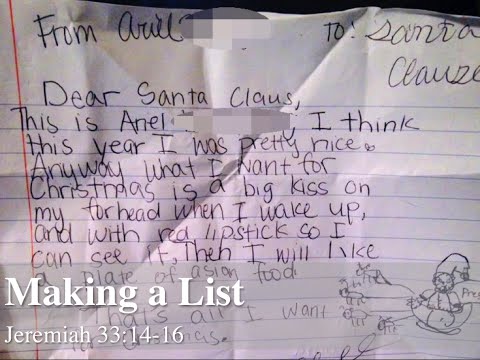 From Ariel
To: Santa
Clauze
Dear Santa Claus,
This is Ariel, I think
this year I was pretty nice.
Anyway what I want for
Christmas is a big kiss on
my forhead when I wake up,
and with red lipstick so I
can see it, then I will like
a plate of asian food.
Making a List
That's all I want
Jeremiah 33:14-16